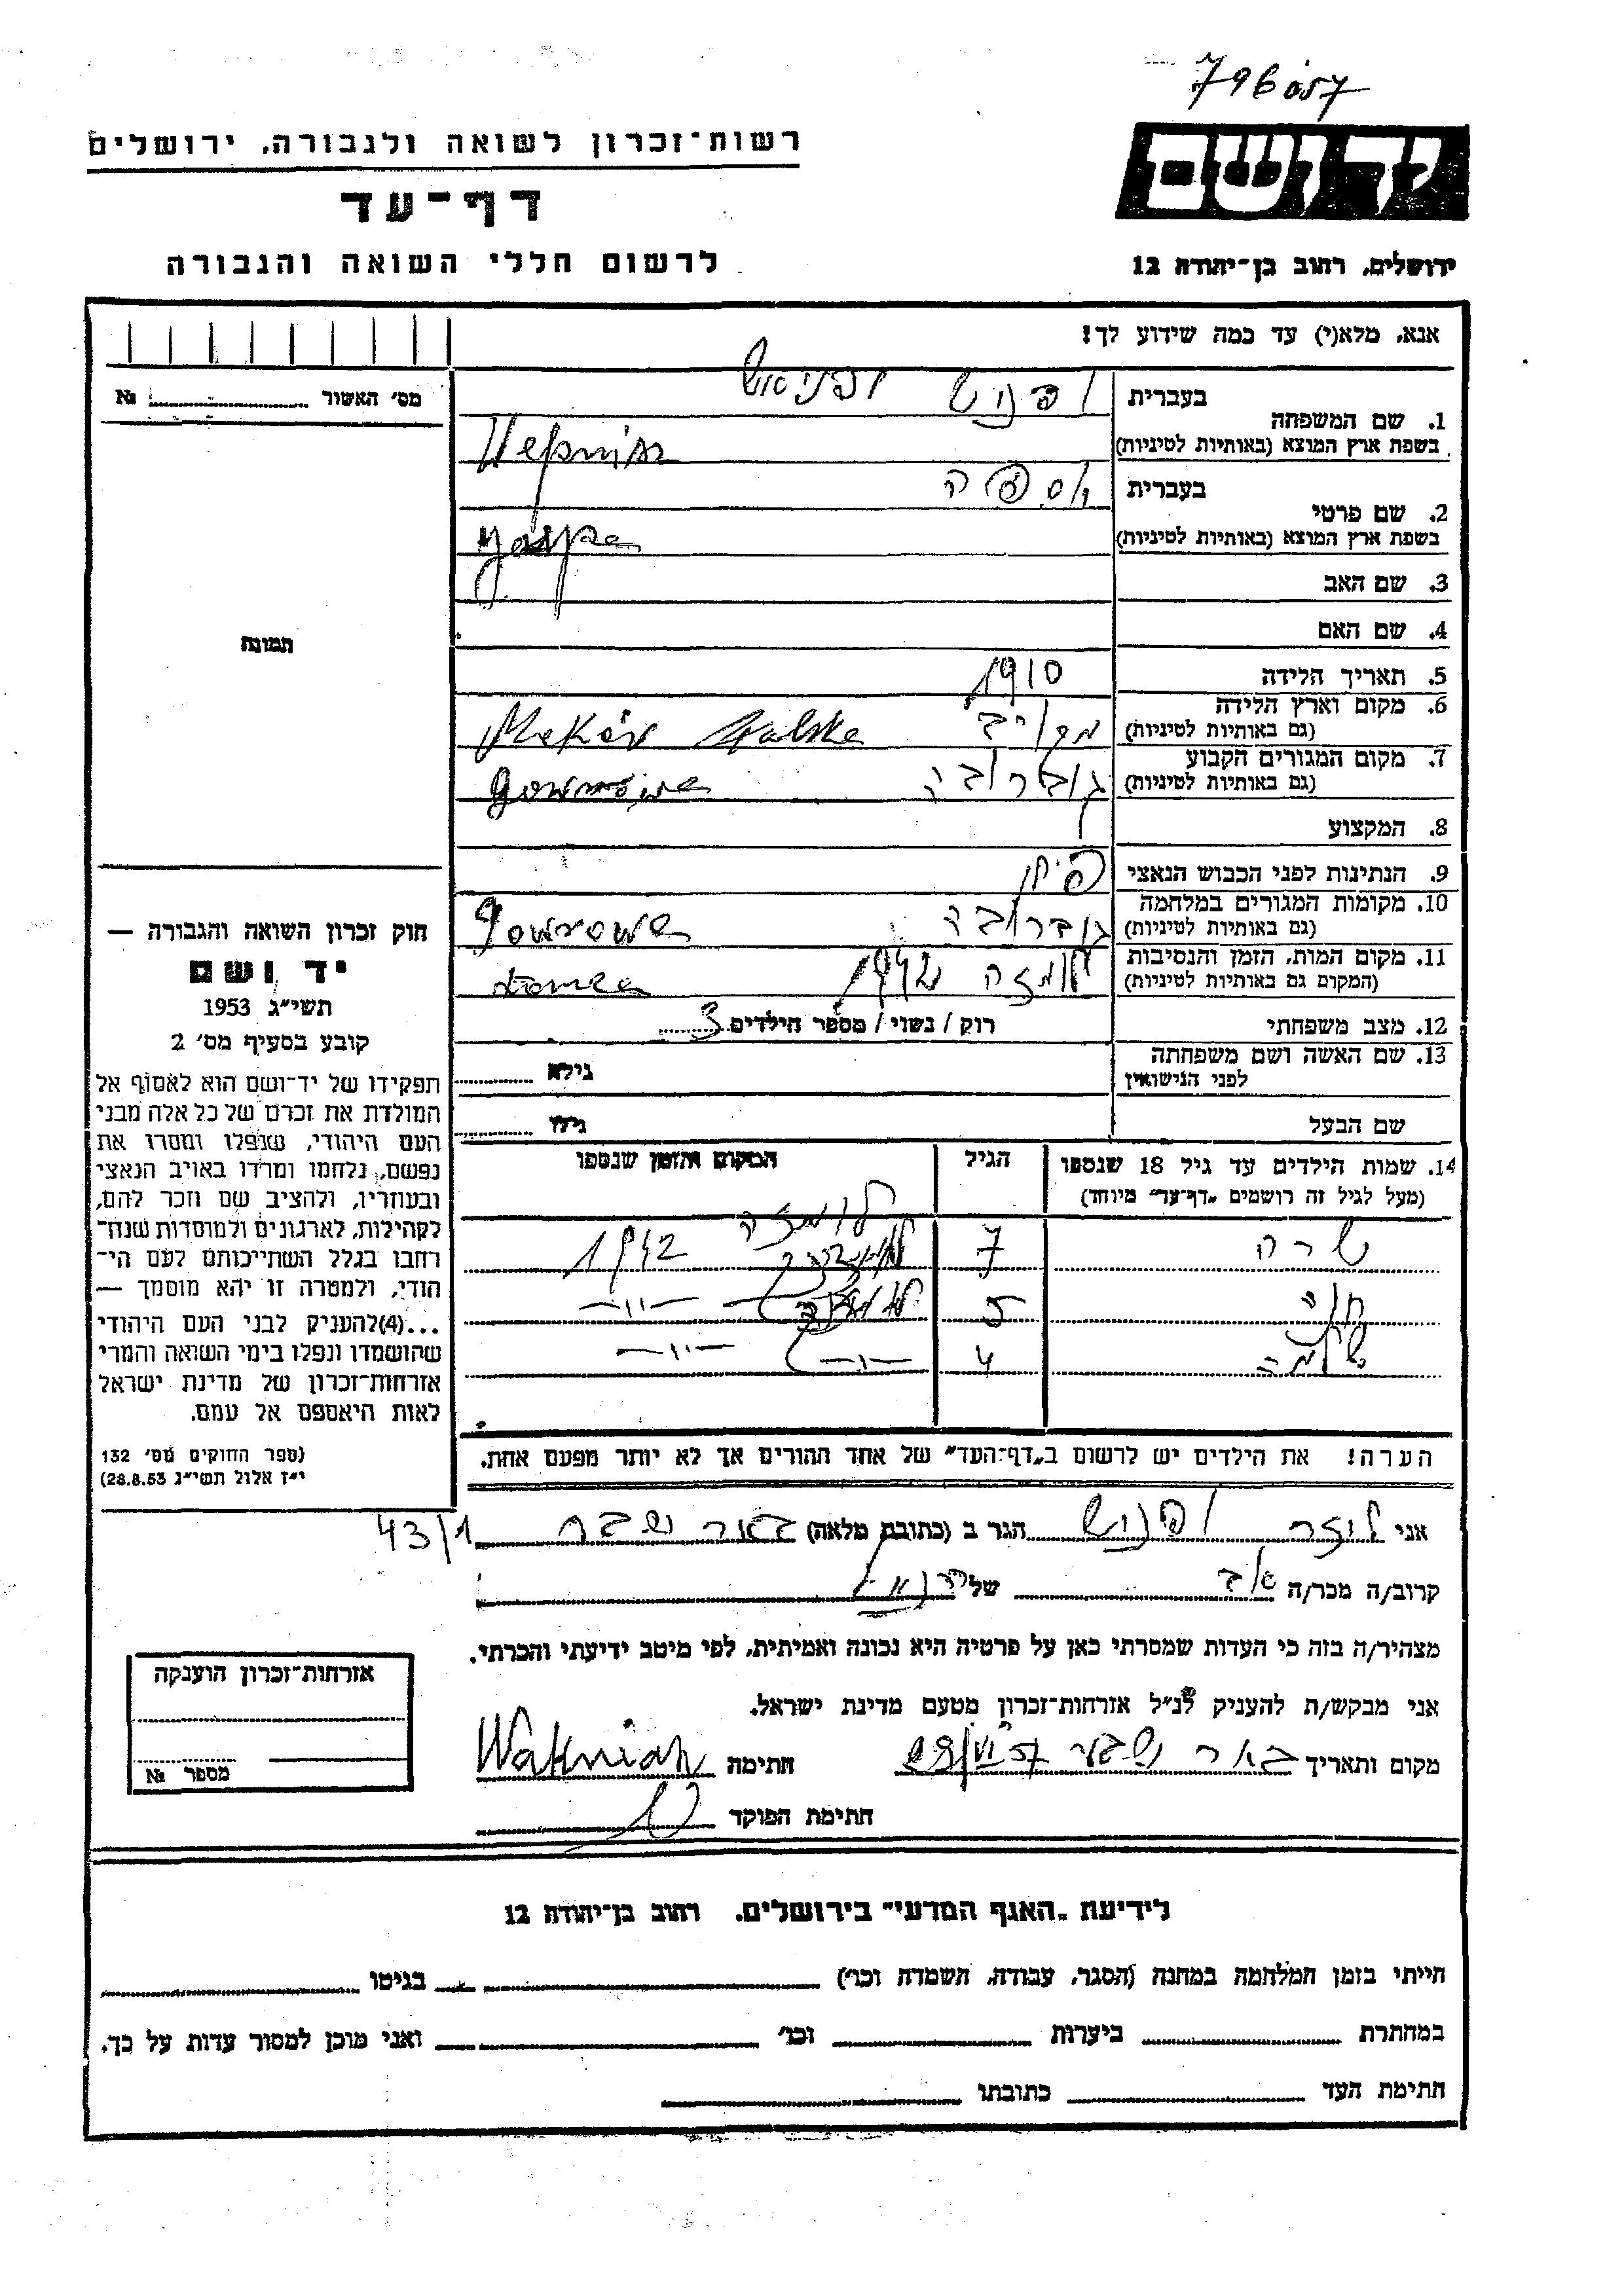 796057
רשות־זכרון לשואה ולגבורה, ירושלים
דף־עד
לרשום חללי השואה והגבורה
יד ושם
ירושלים, רחוב בן־יהודה 12
אנא, מלא(י) עד כמה שידוע לך!
מס' האשור № 
1. שם המשפחה
בעברית
בשפת ארץ המוצא (באותיות לטיניות)
2. שם פרטי
בעברית
בשפת ארץ המוצא (באותיות לטיניות)
3. שם האב
4. שם האם
5. תאריך הלידה 1910
6. מקום וארץ הלידה
(גם באותיות לטיניות)
7. מקום המגורים הקבוע
(גם באותיות לטיניות)
8. המקצוע
9. הנתינות לפני הכבוש הנאצי
10. מקומות המגורים במלחמה
(גם באותיות לטיניות) גוברובה Gowrowa
11. מקום המות, הזמן והנסיבות
(המקום גם באותיות לטיניות) לומזה 1942 Łomza
12. מצב משפחתי רוק / נשוי / מספר הילדים 3
13. שם האשה ושם משפחתה
לפני הנישואין גילה
שם הבעל גילו
14. שמות הילדים עד גיל 18 שנספו הגיל המקום והזמן שנספו
(מעל לגיל זה רושמים „דף־עד" מיוחד)
לומזה
שרה 7 1942
חוה 5 —״—
שלמה 4 —״— —״—
הערה! את הילדים יש לרשום ב„דף־העד" של אחד ההורים אך לא יותר מפעם אחת.
תמונה
חוק זכרון השואה והגבורה —
יד ושם
תשי"ג 1953
קובע בסעיף מס' 2
תפקידו של יד־ושם הוא לאסוף אל
המולדת את זכרם של כל אלה מבני
העם היהודי, שנפלו ומסרו את
נפשם, נלחמו ומרדו באויב הנאצי
ובעוזריו, ולהציב שם וזכר להם,
לקהילות, לארגונים ולמוסדות שנח־
רחבו בגלל השתייכותם לעם הי־
הודי, ולמטרה זו יהא מוסמך —
...(4)להעניק לבני העם היהודי
שהושמדו ונפלו בימי השואה והמרי
אזרחות־זכרון של מדינת ישראל
לאות היאספם אל עמם.
(ספר החוקים מס' 132
י"ז אלול תשי"ג 28.8.53)
אני הגר ב (כתובת מלאה) באר שבע 43/1
קרוב/ה מכר/ה של
מצהיר/ה בזה כי העדות שמסרתי כאן על פרטיה היא נכונה ואמיתית, לפי מיטב ידיעתי והכרתי.
אני מבקש/ת להעניק לנ"ל אזרחות־זכרון מטעם מדינת ישראל.
מקום ותאריך באר שבע חתימה
חתימת הפוקד
אזרחות־זכרון הוענקה
מספר №
לידיעת „האגף המדעי" בירושלים. רחוב בן־יהודה 12
הייתי בזמן המלחמה במחנה (הסגר, עבודה, השמדה וכו') בגיטו
במחתרת ביערות וכו' ואני מוכן למסור עדות על כך.
חתימת העד כתובתו